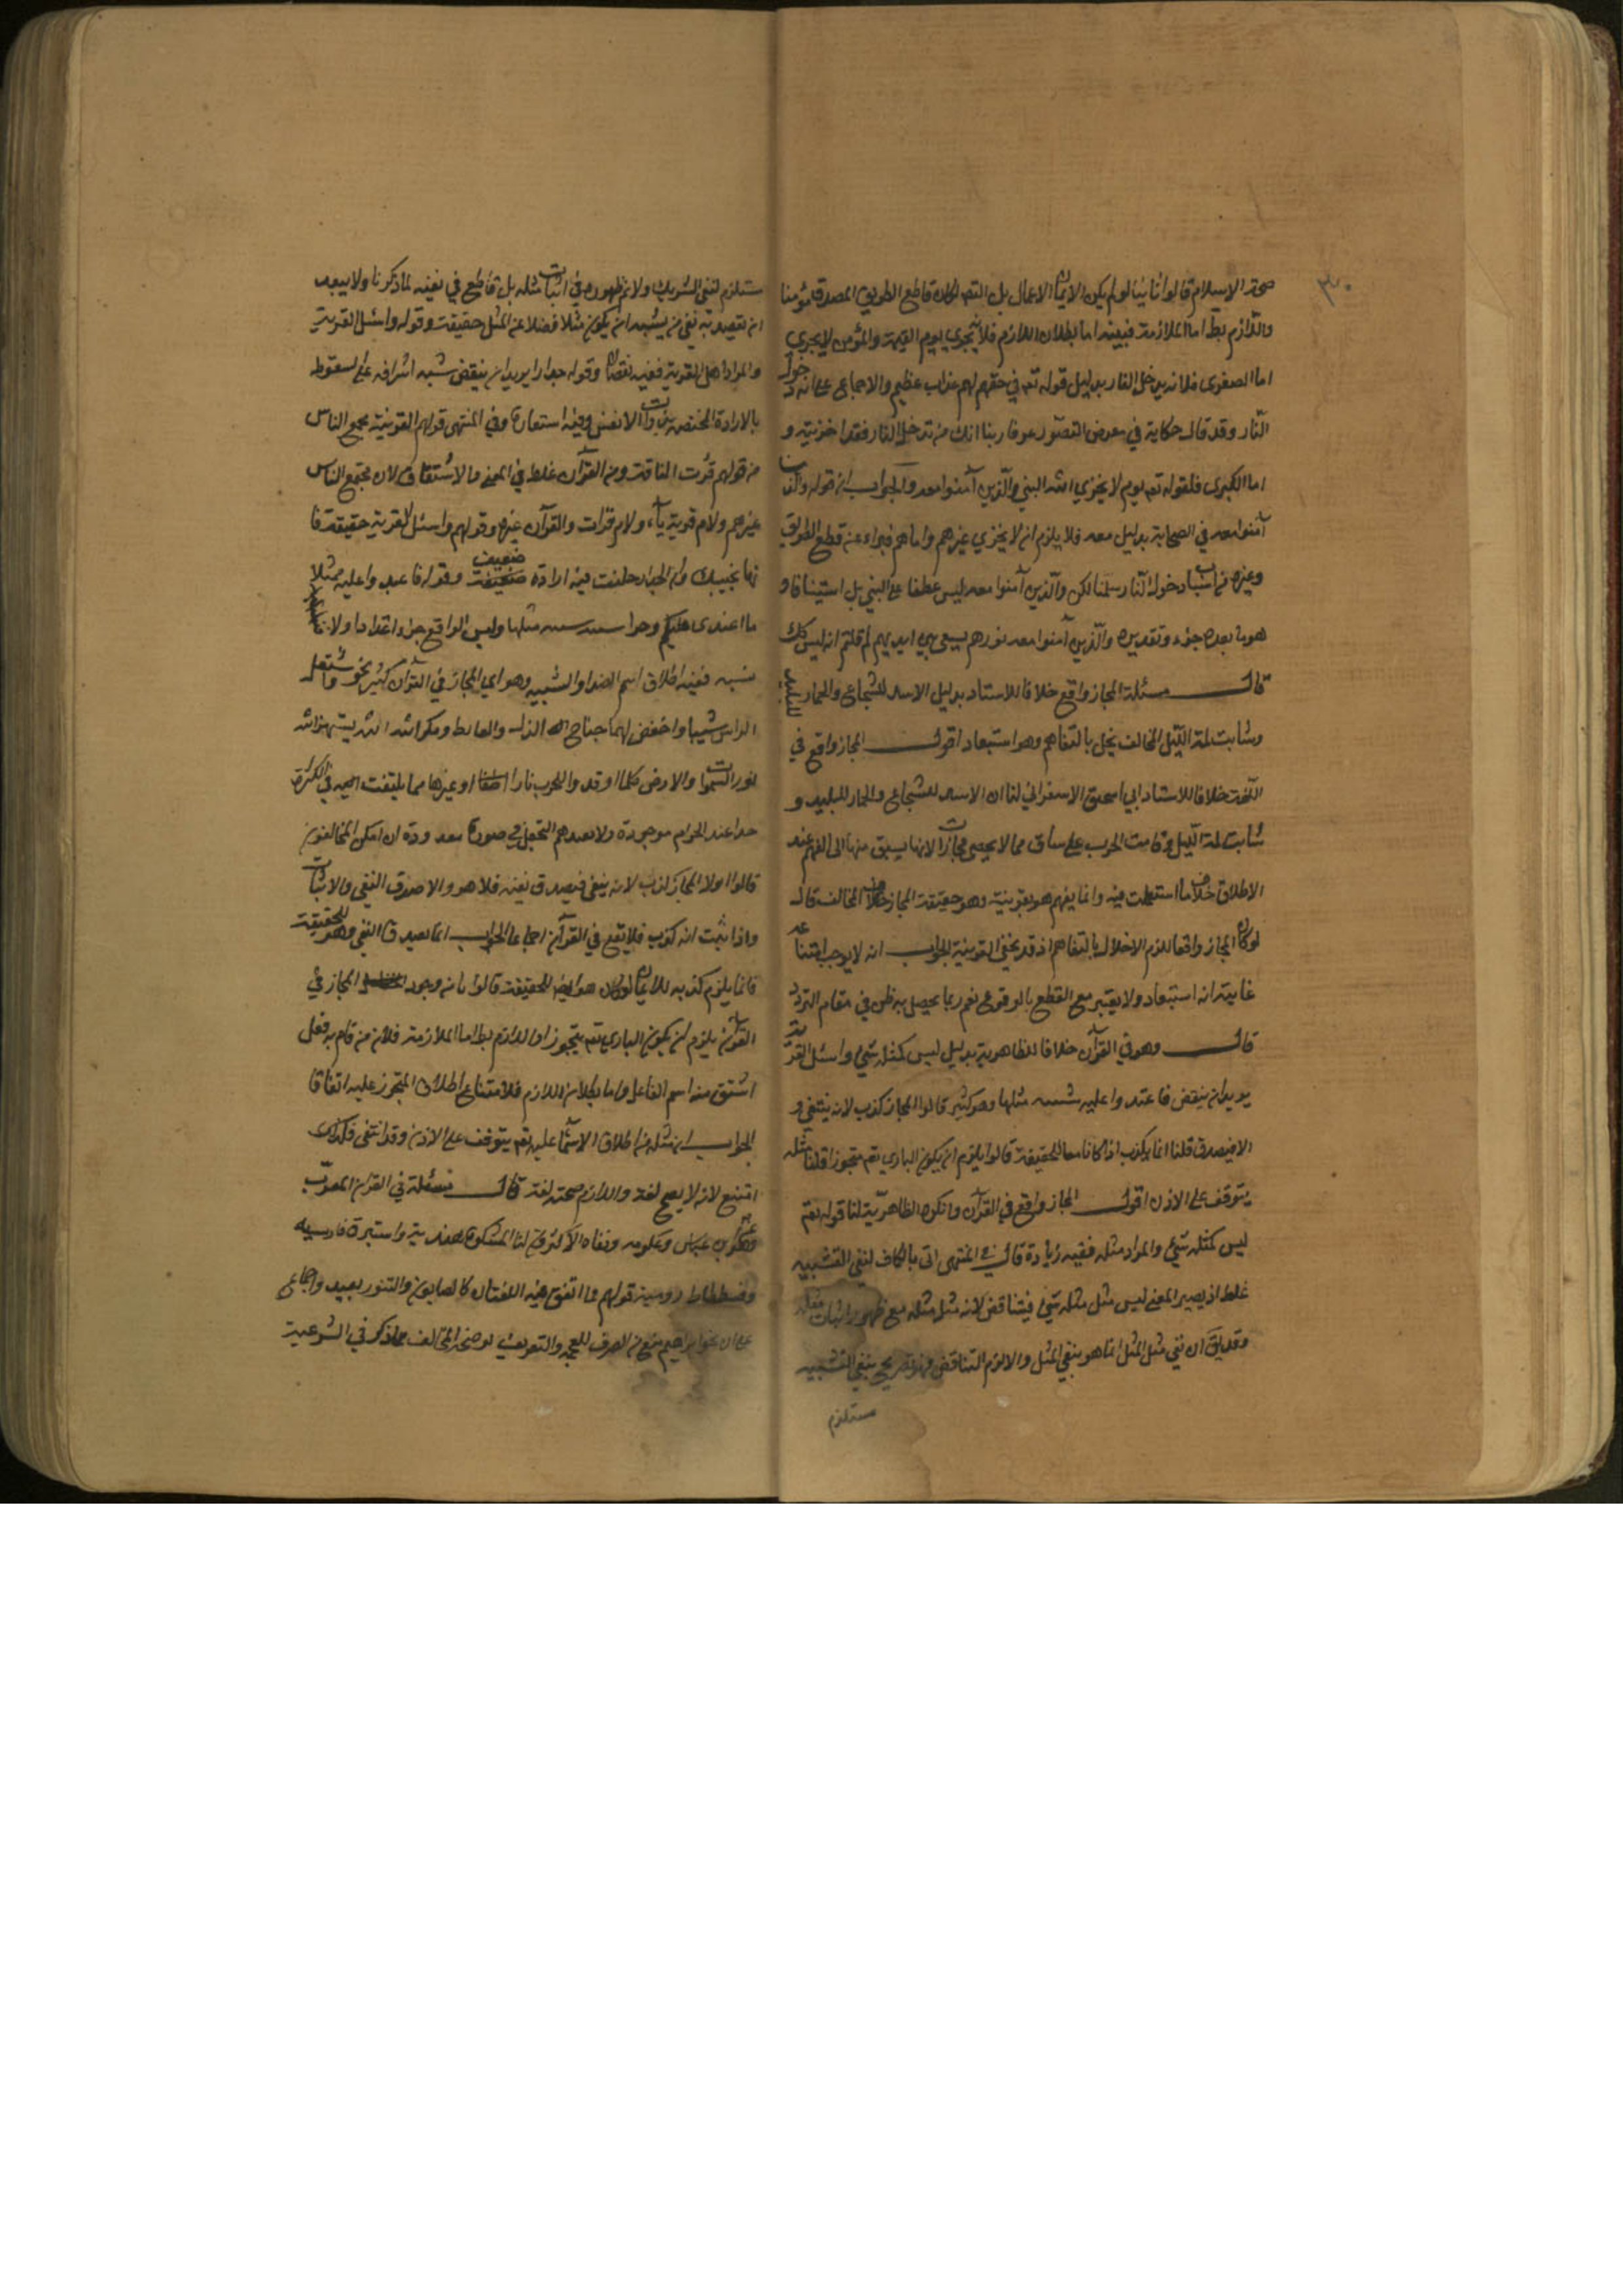 ٣٠
صحة الاسلام قالوا ثانيا لو لم يكن الايمان الاعمال بل التصديق لكان قاطع الطريق المصدق مؤمنا
واللازم بط اما الملازمة فبينه اما بطلان اللازم فلانه يخزي يوم القيمة والمؤمن لا يخزي
اما الصغرى فلانه يدخل النار بدليل قوله تعم في حقهم لهم عذاب عظيم والاجماع على انه دخول
النار وقد قال حكاية في معرض التصديق عرفا ربنا انك من تدخل النار فقد اخزيته و
اما الكبرى فلقوله تعم يوم لا يخزي الله النبي والذين آمنوا معه والجواب ان قوله والذين
آمنوا معه في الصحابة بدليل معه فلا يلزم ان لا يخزي غيرهم واماهم فبراء عن قطع الطريق
وغيره من اسباب دخول النار سلمنا لكن والذين آمنوا معه ليس عطفا على النبي بل استينافا و
هو ما بعده جزء وتقديره والذين آمنوا معه نورهم يسعى بين ايديهم لم قلتم انه ليس كك
قال مسئلة المجاز واقع خلافا للاستاد بدليل الاسد للشجاع والحمار للبليد
وشابت لمة الليل المخالف يخل بالتفاهم وهو استبعاد اقول المجاز واقع في
اللغة خلافا للاستاد ابي اسحق الاسفرايني لنا ان الاسد للشجاع والحمار للبليد و
شابت لمة الليل وقامت الحرب على ساق مما لا يحصى مجازات لانها يسبق منها الى الفهم عند
الاطلاق خلاف ما استعملت فيه وانما يفهم هو بقرينة وهو حقيقة المجاز خلاف المخالف قال
لو كان المجاز واقعا للزم الاخلال بالتفاهم اذ قد يخفى القرينة الجواب انه لا يوجب امتناعه
غايته انه استبعاد ولا يعتبر مع القطع بالوقوع نعم ربما يحصل به ظن في مقام التردد
قال وهو في القرآن خلافا للظاهرية بدليل ليس كمثله شيء واسئل القرية
يريد ان ينقض فاعتدوا عليه سيئة مثلها وهو كثير قالوا المجاز كذب لانه ينتفي و
الا فيصدق قلنا انما يكذب اذا كانا معا للحقيقة قالوا يلزم ان يكون الباري تعم متجوزا قلنا مثله
يتوقف على الاذن اقول المجاز واقع في القرآن وانكره الظاهرية لنا قوله تعم
ليس كمثله شيء والمراد مثله ففيه زيادة قال في المنتهى اتى بالكاف لنفي التشبيه
غلط اذ يصير المعنى ليس مثل مثله شيء فيتناقض لانه مثل مثله مع ظهور اثبات مثله
وقد يق ان نفي مثل المثل انما هو بنفي المثل والا لزم التناقض فهو تصريح بنفي التشبيه
مستلزم
ستلزم لنفي الشريك ولا نم ظهوره في اثبات مثله بل قاطع في نفيه لما ذكرنا ولا يبعد
ان يقصد به نفي من يشبه ان يكون مثلا فضلا عن المثل حقيقة وقوله واسئل القرية
والمراد اهل القرية ففيه نقصان وقوله جدارا يريد ان ينقض شبه اشرافه على السقوط
بالارادة المختصة بذوات الانفس ففيه استعارة وفي المنتهى قولهم القرية مجمع الناس
من قولهم قرئت الناقة ومنه القرآن غلط في المعنى والاشتقاق لان مجتمع الناس
غيرهم ولام قرية ياء ولام قرات والقرآن غيره وقولهم واسئل القرية حقيقة فا
نها تجيبك وان الجدار خلقت فيه ارادة ضعيف وقوله فاعتدوا عليه بمثل
ما اعتدى عليكم وجزاء سيئة سيئة مثلها وليس الواقع جزاء اعتداء ولا
سيئة ففيه اطلاق اسم الضد او الشبيه وهو اي المجاز في القرآن كثير نحو واشتعل
الراس شيبا واخفض لهما جناح الذل والغايط ومكر الله الله يستهزئ الله
نور السموات والارض كلما اوقدوا للحرب نارا اطفا وغيرها مما يلتفت اليه في الكثرة
قالوا اولا المجاز كذب لانه ينفى فيصدق نفيه فلا هو والا صدق النفي والاثبات
واذا ثبت انه كذب فلا يقع في القرآن اجماعا الجواب انما يصدق النفي وهو للحقيقة
فانما يلزم كذبه للاثبات لو كان هو ايضا للحقيقة قالوا ثانيا وجود المجاز في
القرآن يلزم ان يكون الباري تعم متجوزا واللازم بط اما الملازمة فلان من قام به فعل
اشتق منه اسم الفاعل واما بطلان اللازم فلامتناع اطلاق المتجوز عليه اتفاقا
الجواب ان مثله من اطلاق الاسماء عليه تعم يتوقف على الاذن وقد انتفى فلذلك
امتنع لا لانه لا يصح لغة واللازم صحته لغة قال مسئلة في القرآن المعرب
وهو عن ابن عباس وعكرمه ونفاه الاكثرون لنا المشكوة هندية واستبرق فارسيه
وقسطاط رومية قولهم مما اتفق فيه اللغتان كالصابون والتنور بعيد واجماع
على ان نحو ابراهيم منع من الصرف للعجمة والتعريف يوضحه المخالف ما ذكر في الشرعية